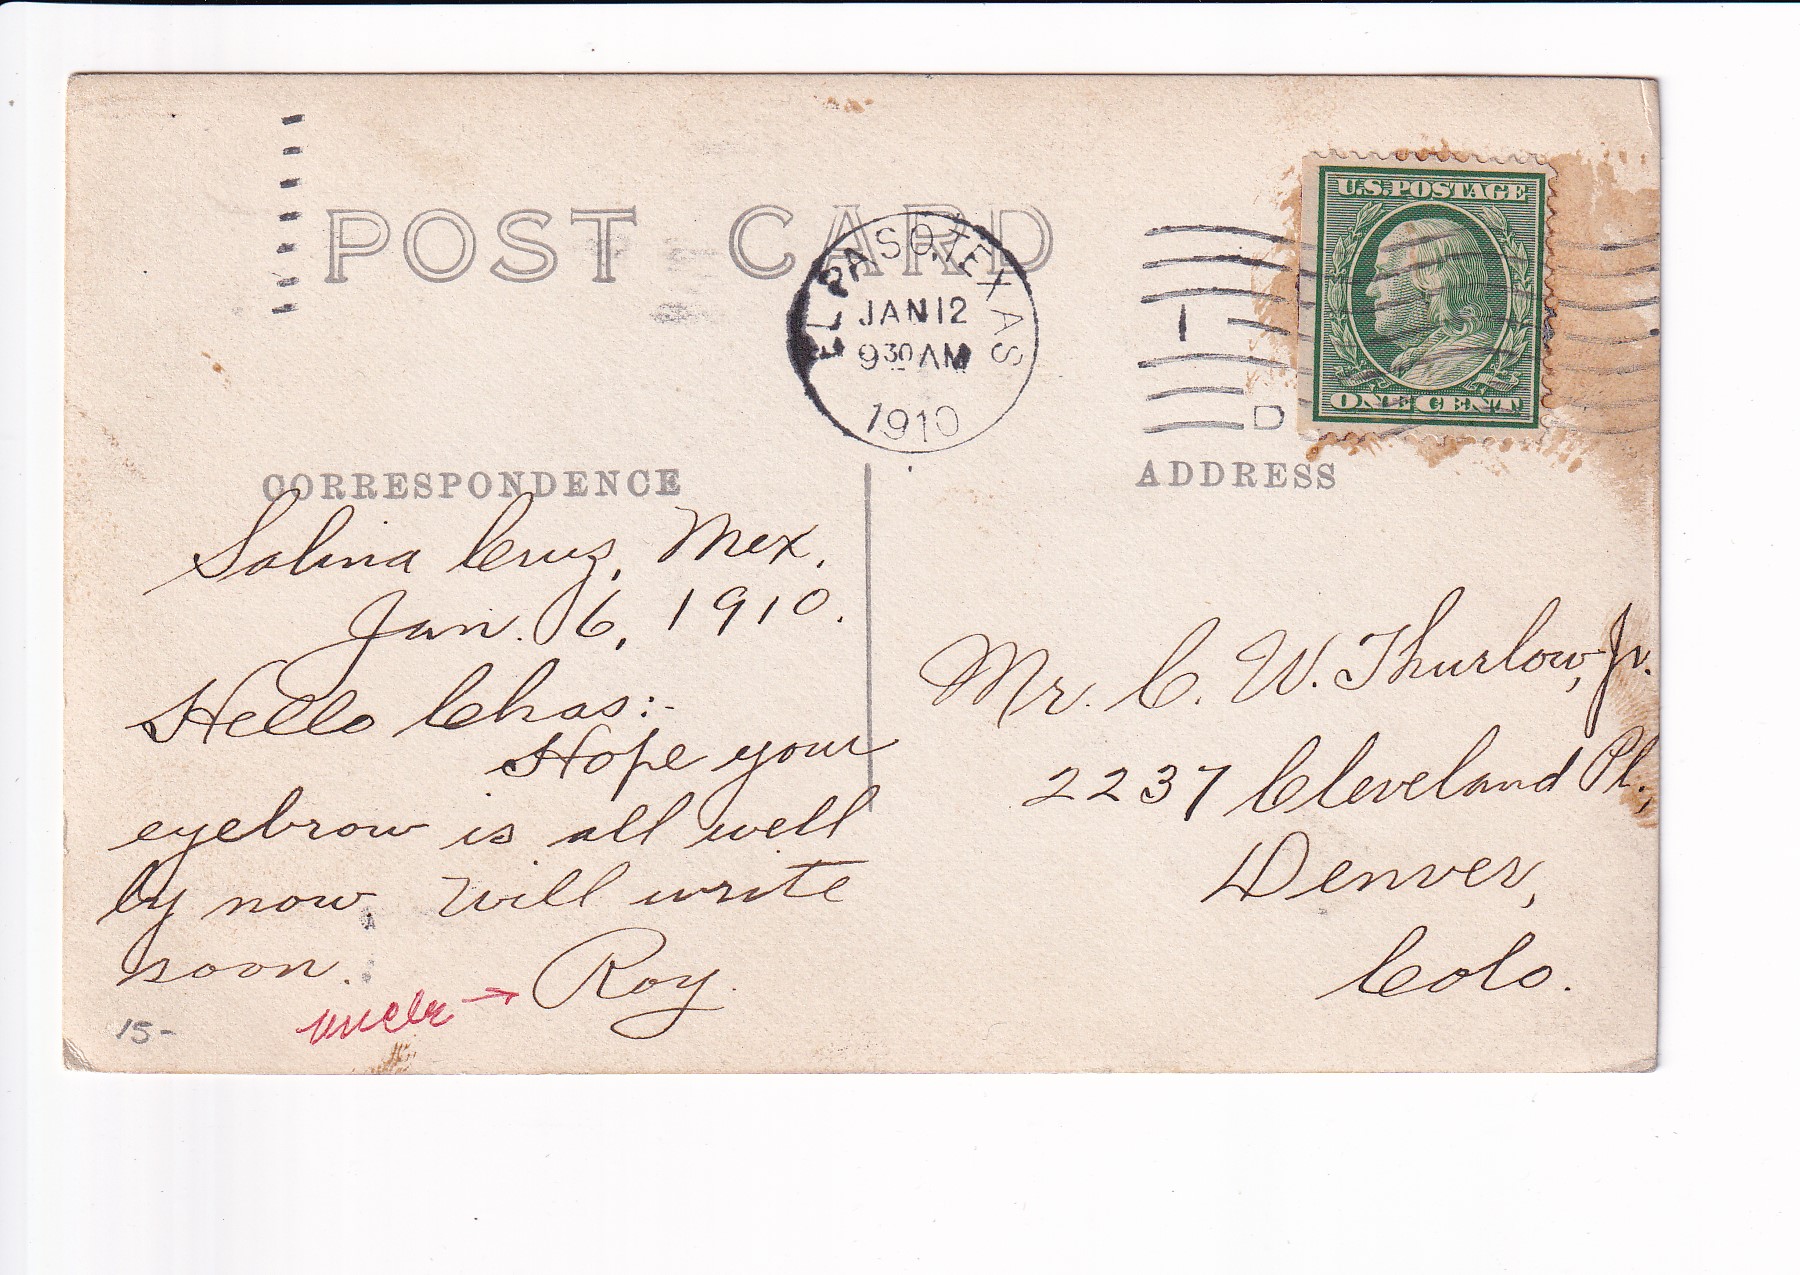 POST CARD
EL PASO, TEXAS
JAN 12
9 30 AM
1910
1
D
U.S. POSTAGE
ONE CENT
CORRESPONDENCE
ADDRESS
Salina Cruz, Mex.
Jan. 6, 1910.
Hello Chas:-
Hope your
eyebrow is all well
by now will write
soon.
Roy.
uncle →
15-
Mr. C. W. Thurlow, Jr.
2237 Cleveland Pl.,
Denver,
Colo.